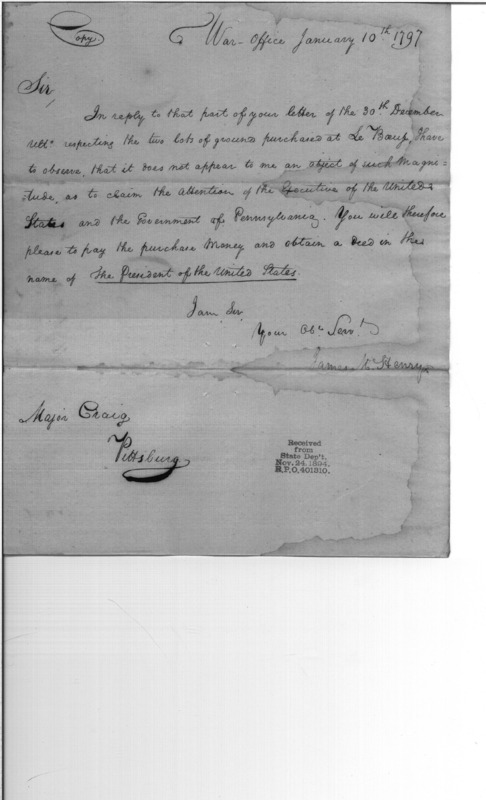 Copy
War-Office January 10th 1797
Sir,
In reply to that part of your letter of the 30th December
Ulto. respecting the two lots of ground purchased at Le Bœuf, I have
to observe, that it does not appear to me an object of such Magni=
=tude, as to claim the Attention of the Executive of the United
States and the Government of Pennsylvania. You will therefore
please to pay the purchase Money and obtain a Deed in the
name of The President of the United States.
I am Sir,
Your Obt. Servt.
James McHenry
Major Craig
Pittsburg
Received
from
State Dep't.
Nov. 24, 1894.
R.P.O. 401310.